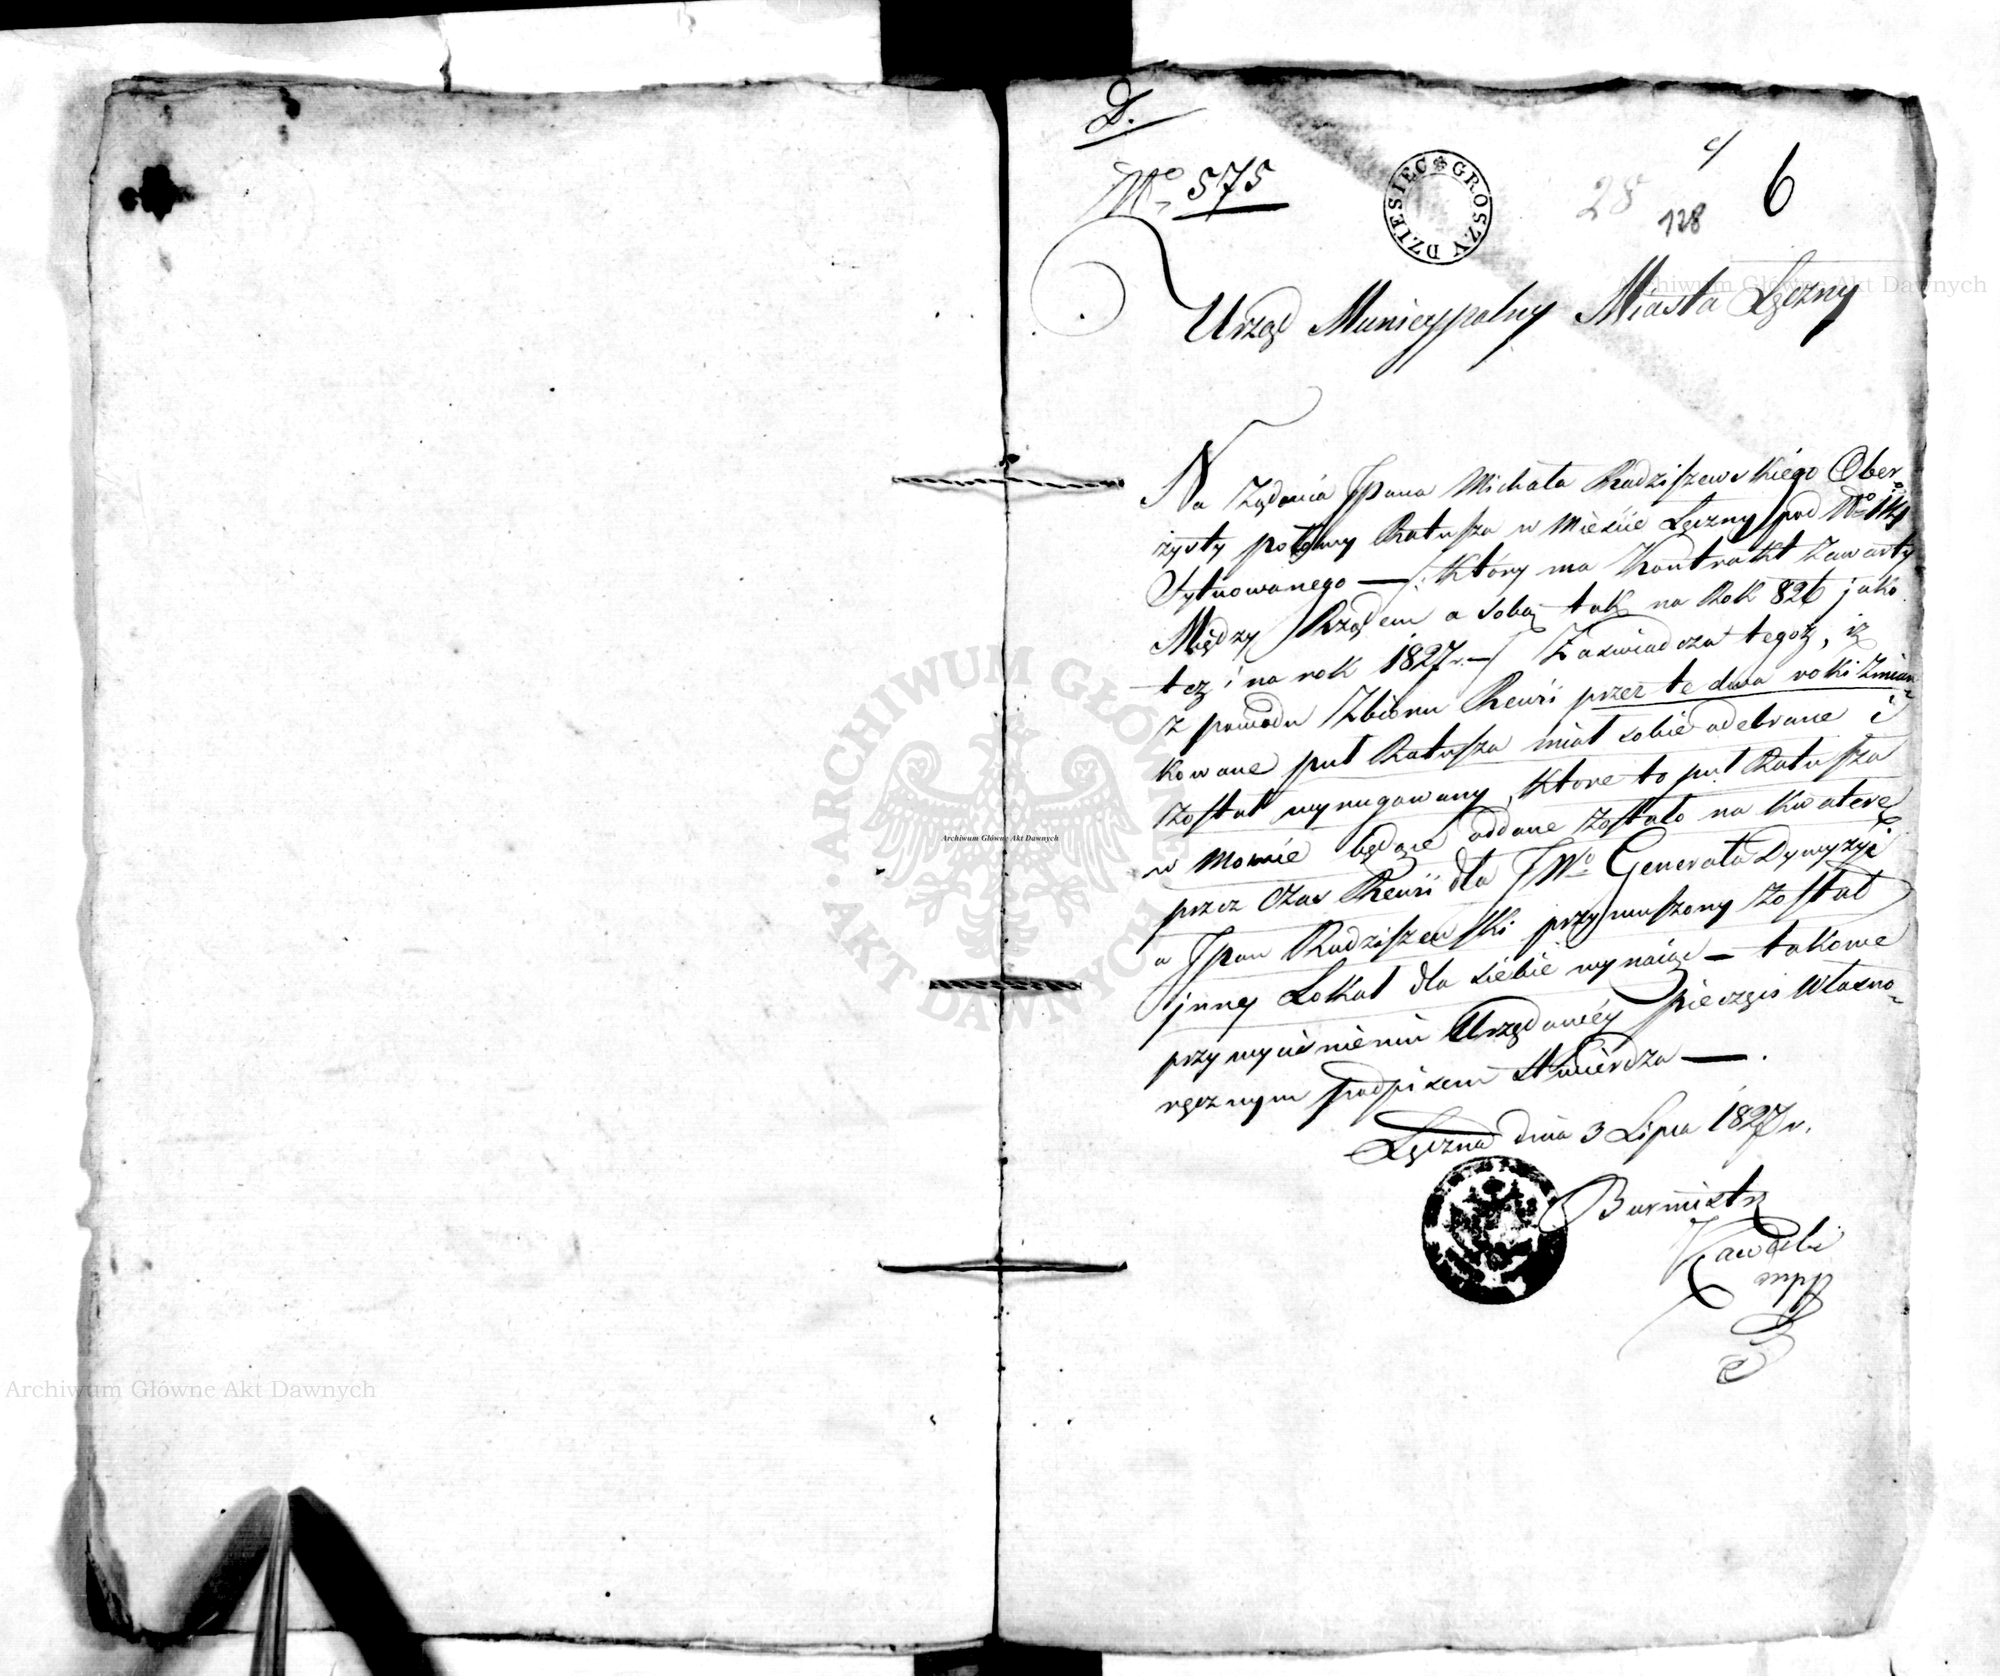 D.
No 575
DZIESIĘĆ GROSZY
28
128
6
Urząd Municypalny Miasta Łęczny
Na Żądania JPana Michała Radziszewskiego Ober-
żysty połowy Ratusza w Mieście Łęczny pod No 149
Sytuowanego — /: Który ma Kontrakt Zawarty
Między Rządem a sobą tak na Rok 826 jako
też i na rok 1827 r. — / Zaświadcza tegoż, iż
z powodu Zbioru Rewii przez te dwa roki Zmian-
kowane puł Ratusza miał sobie odebrane i
został wyrugowany, Które to puł Ratusza
w Mowie będące oddane Zostało na Kwaterę
przez Czas Rewii dla JWo Generała Dywyzyi
a JPan Radziszewski przymuszony Został
inny Lokal dla siebie wynaiąć — takowe
przy wyciśnieniu Urzędowéy pieczęci Własno-
ręcznym podpisem stwierdza — .
Łęczna dnia 3 Lipca 1827 r.
Burmistrz
mpp
ARCHIWUM GŁÓWNE AKT DAWNYCH
Archiwum Główne Akt Dawnych
Archiwum Główne Akt Dawnych
Archiwum Główne Akt Dawnych